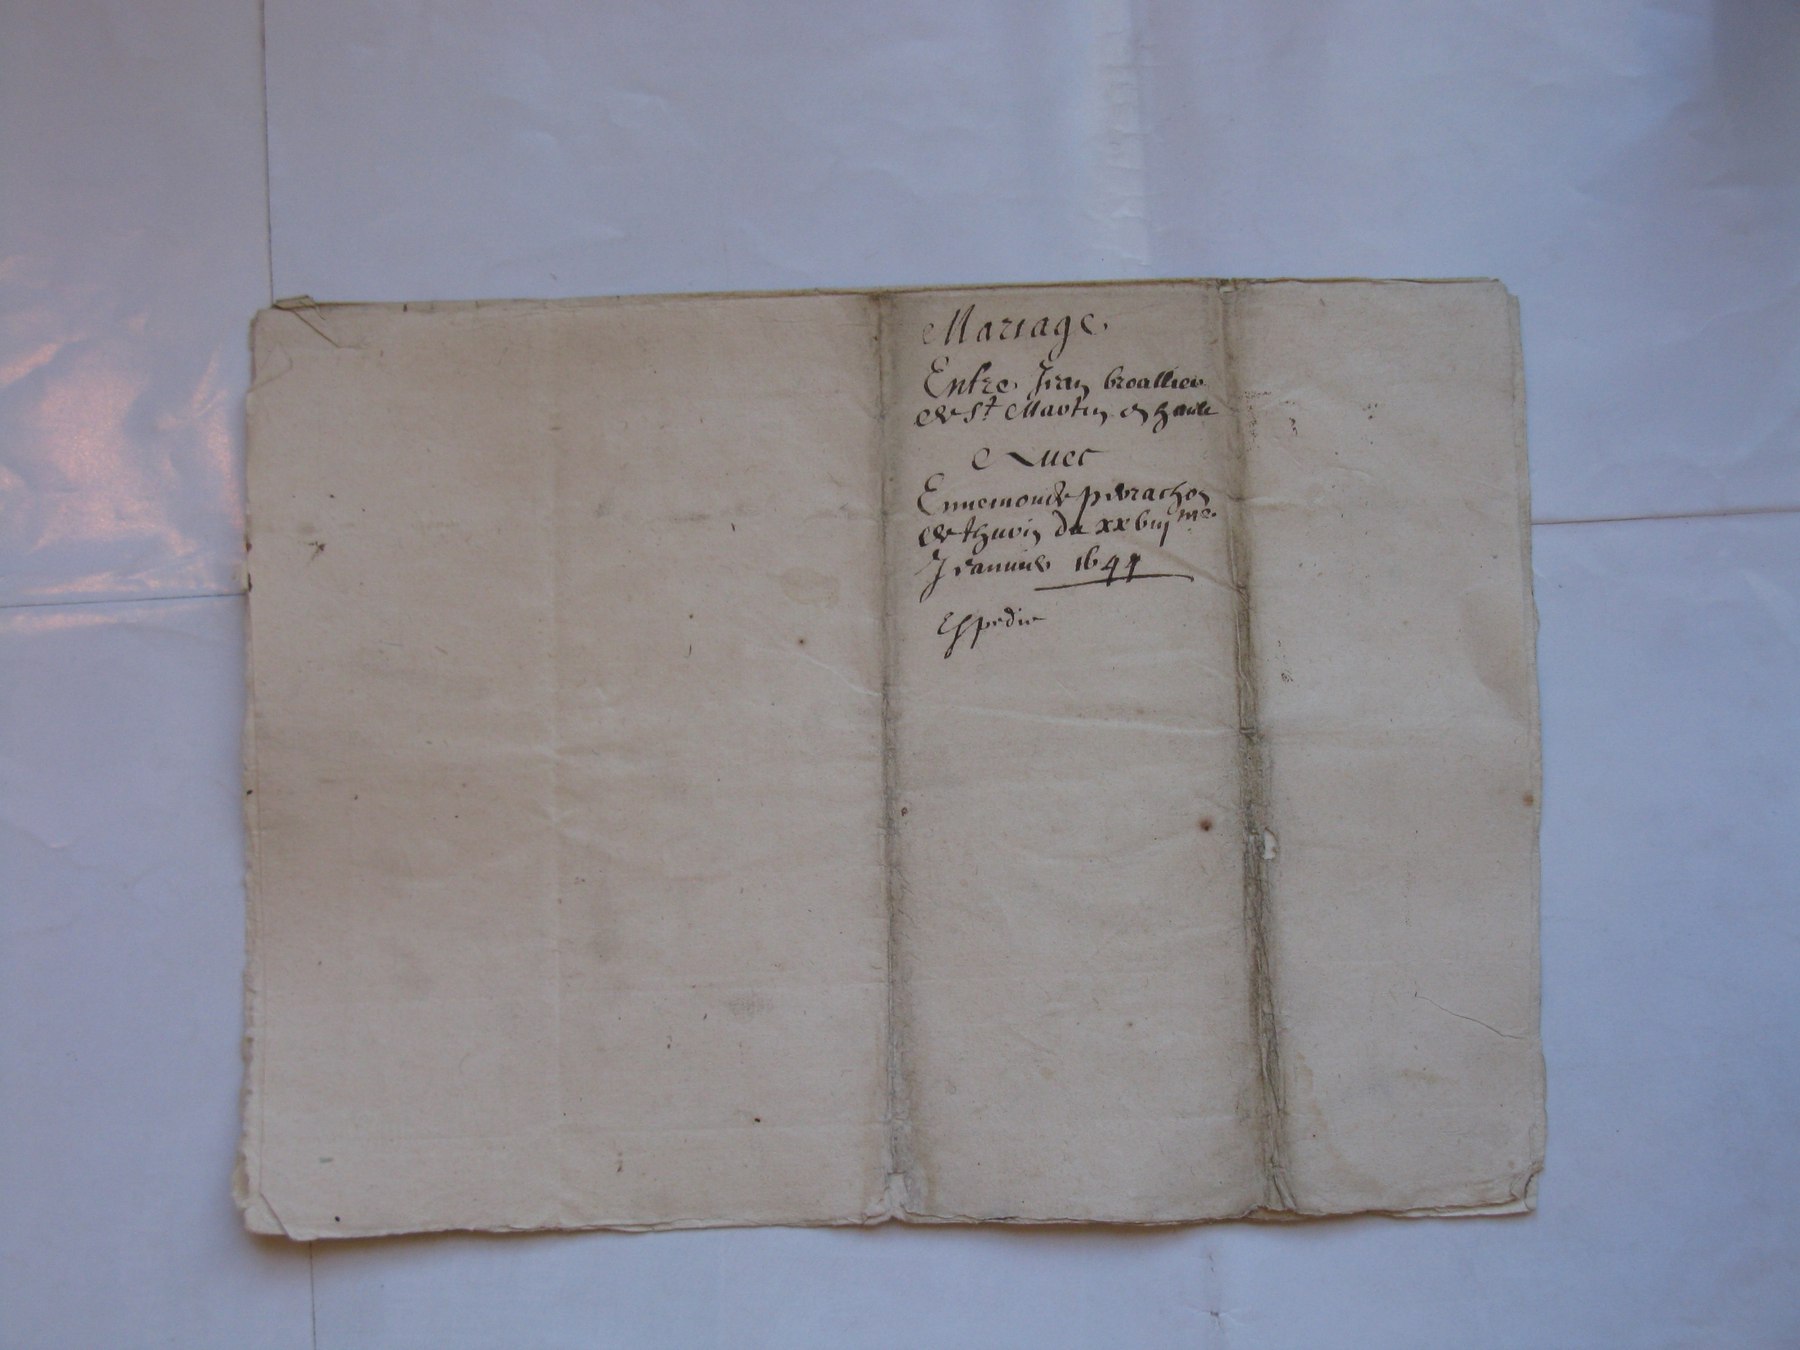 Mariage
Entre Jean broallier
de St Martin en haulte
Avec
Ennemonde perrachon
de thurin du xxbiij me
Jeanvier 1644
Espedie